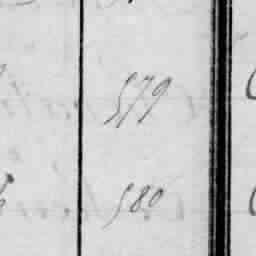 579
580